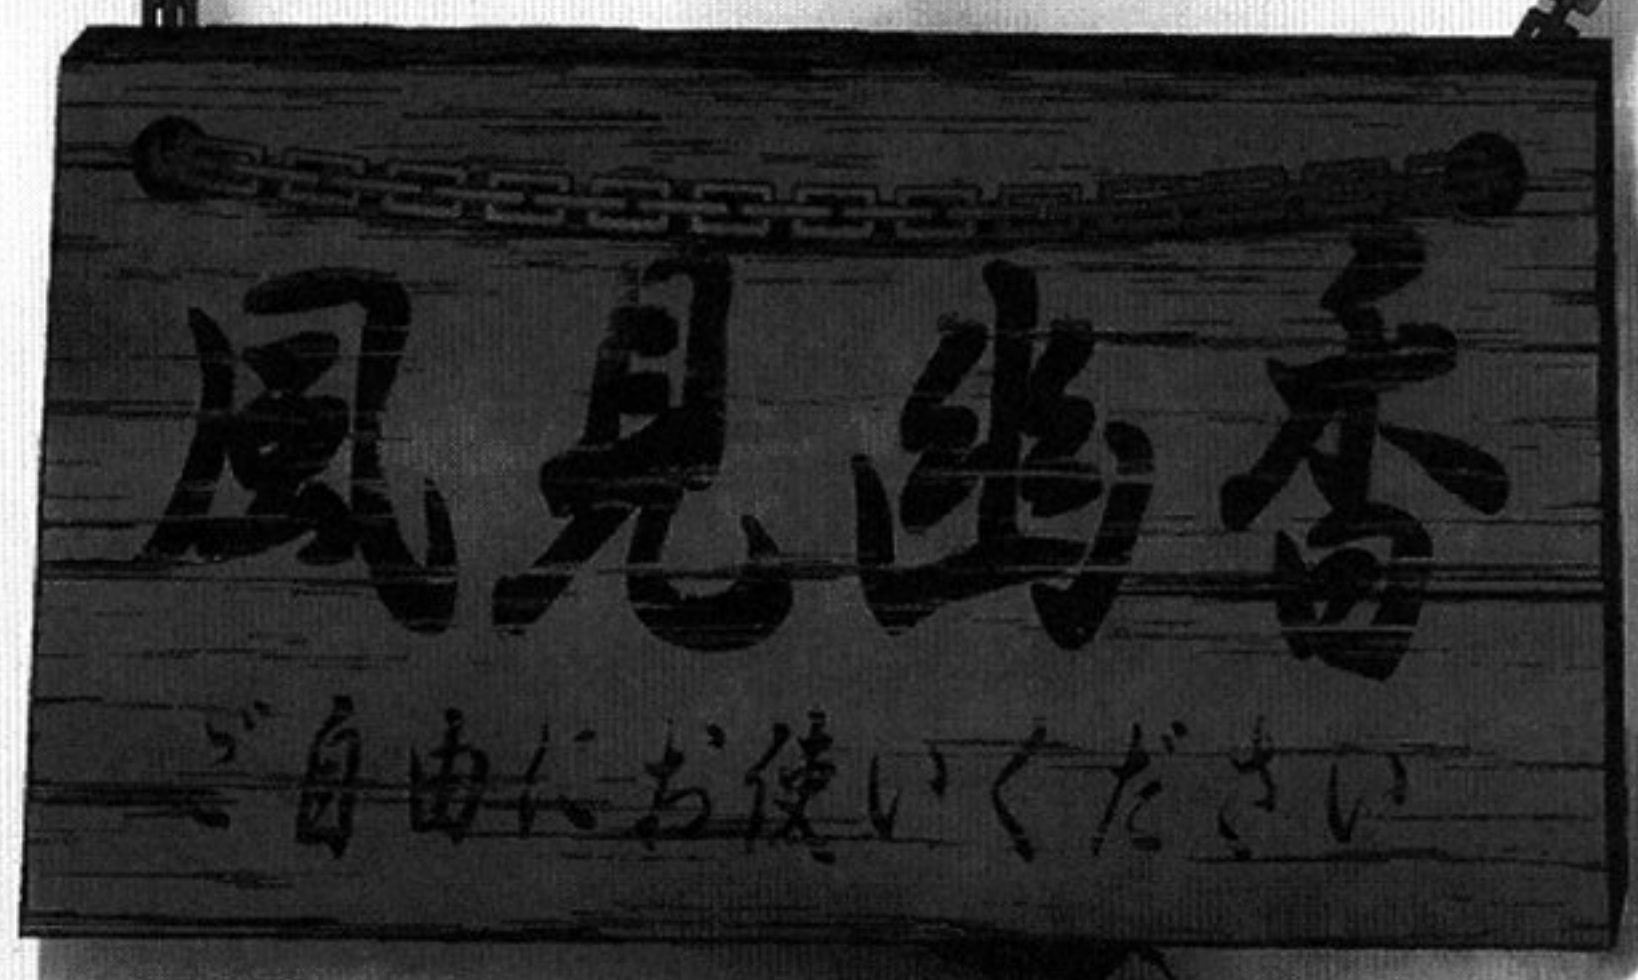 風見幽香
ご自由にお使いください